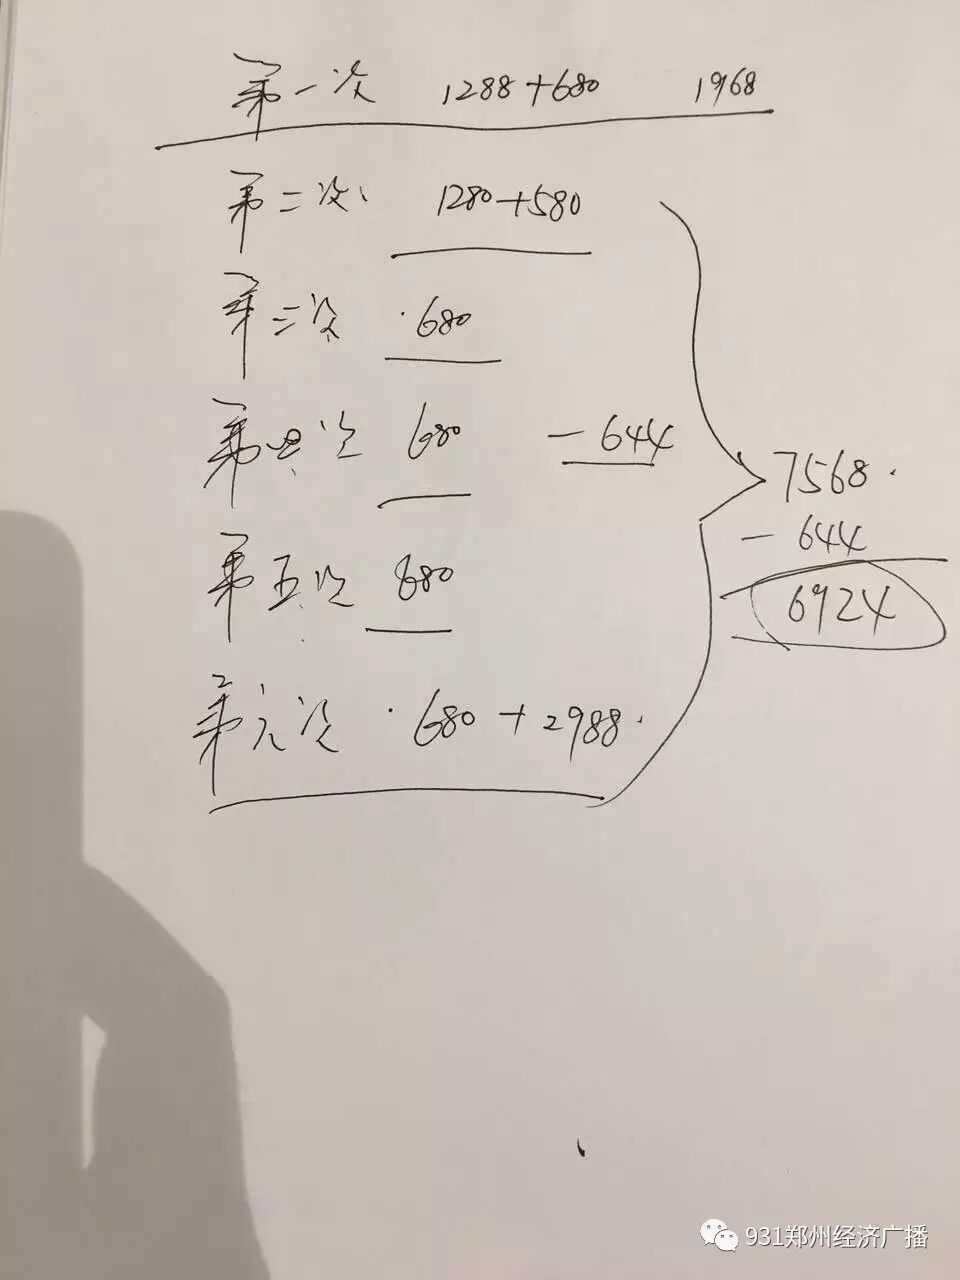 第一次 1288+680 1968
第二次 1280+580
第三次 680
第四次 680 -644
第五次 680
第六次 680+2988
7568
-644
6924
931郑州经济广播